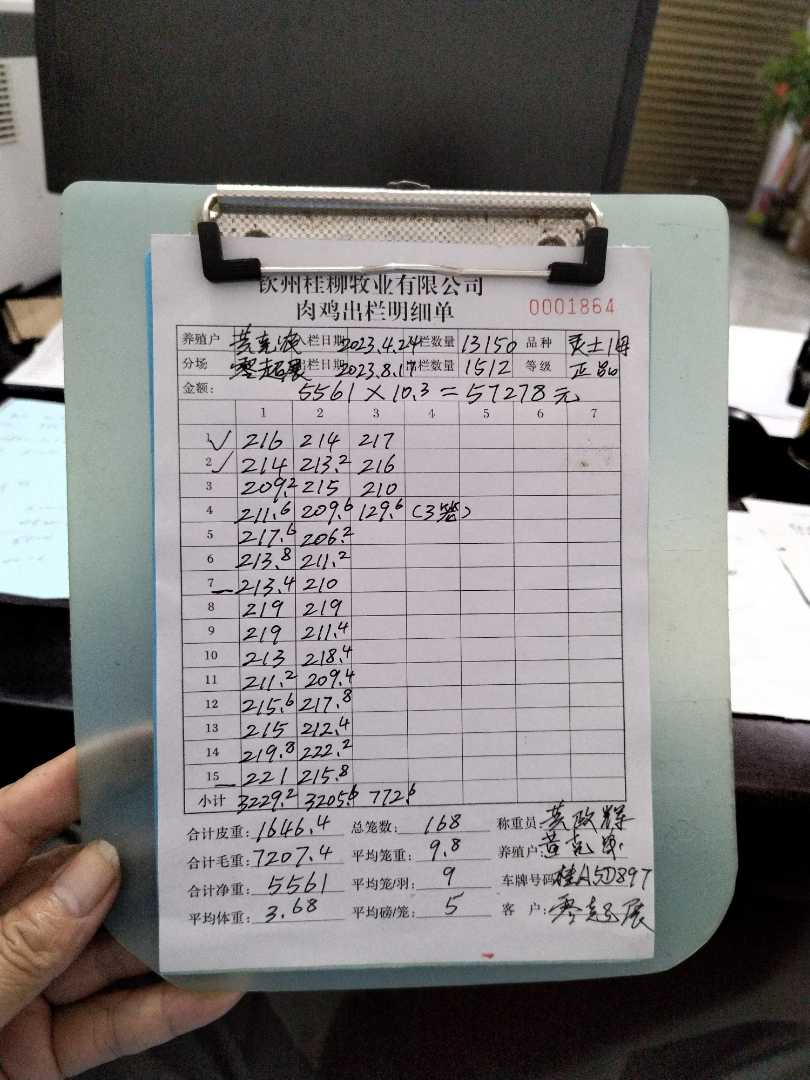 钦州桂柳牧业有限公司
肉鸡出栏明细单 0001864
养殖户 入栏日期 2023.4.24 栏数量 13150 品种
分场 零超展 出栏日期 2023.8.17 栏数量 1512 等级 正品
金额: 5561×10.3=57278元
1 2 3 4 5 6 7
1 216 214 217
2 214 213.2 216
3 209.2 215 210
4 211.6 209.6 129.6 (3笼)
5 217.6 206.2
6 213.8 211.2
7 213.4 210
8 219 219
9 219 211.4
10 213 218.4
11 211.2 209.4
12 215.6 217.8
13 215 212.4
14 219.8 222.2
15 221 215.8
小计 3229.2 3205.6 772.6
合计皮重: 1646.4 总笼数: 168 称重员: 黄政辉
合计毛重: 7207.4 平均笼重: 9.8 养殖户:
合计净重: 5561 平均笼/羽: 9 车牌号码: 桂A5D897
平均体重: 3.68 平均磅/笼: 5 客 户: 零超展